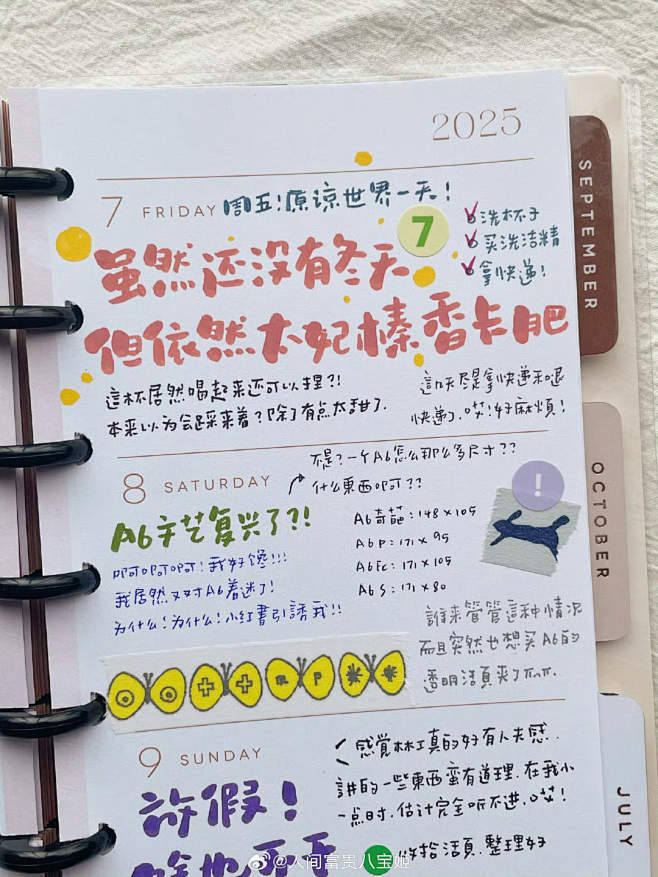 2025
7 FRIDAY 周五!原谅世界一天!
7
洗杯子
买洗洁精
拿快递!
虽然还没有冬天
但依然太妃榛香卡肥
這杯居然喝起来还可以捏?!
本来以为会踩来着?除了有点太甜了.
這几天尽是拿快递和退
快递了.哎!好麻煩!
8 SATURDAY
不是?一个A6怎么那么多尺寸??
什么東西啊??
A6文艺复兴了?!
啊啊啊!我好馋!!!
我居然又对A6着迷了!
为什么!为什么!小红書引誘我!!
A6奇葩:148×105
A6 P:171×95
A6 Fc:171×105
A6 S:171×80
!
誰来管管這种情况
而且突然也想买A6的
透明活頁夹了
9 SUNDAY
許假!
感覚林工真的好有人夫感.
講的一些東西蛮有道理.在我小
一点时.估计完全听不进.哎!
收拾活頁.整理好
@人间富贵八宝姬
SEPTEMBER
OCTOBER
JULY